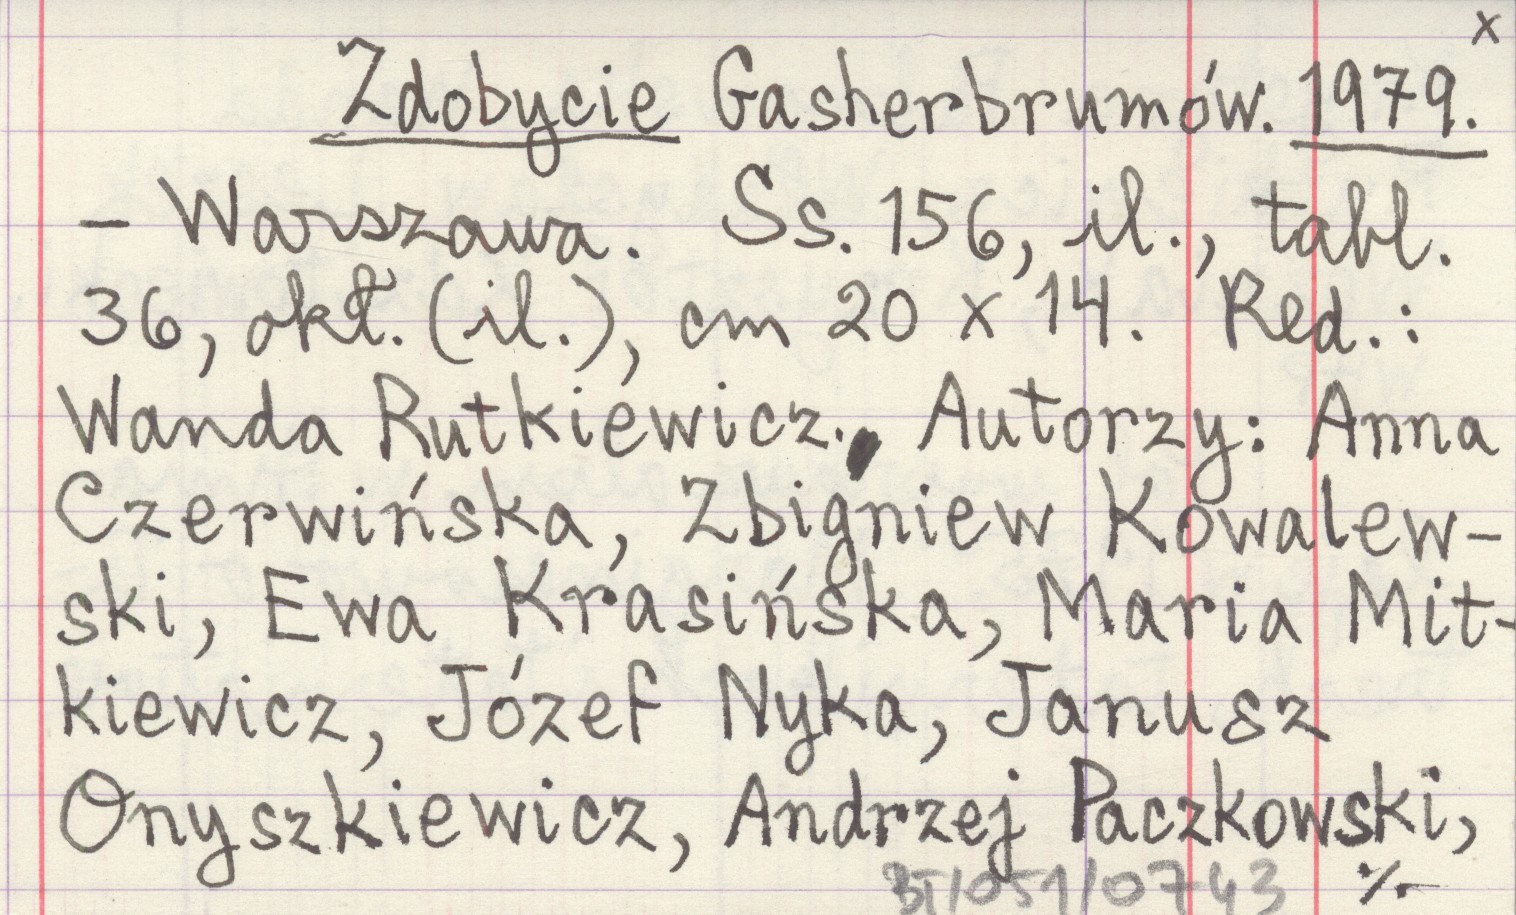 x
Zdobycie Gasherbrumów. 1979.
- Warszawa. Ss. 156, il., tabl.
36, okł. (il.), cm 20 x 14. Red.:
Wanda Rutkiewicz. Autorzy: Anna
Czerwińska, Zbigniew Kowalew-
ski, Ewa Krasińska, Maria Mit-
kiewicz, Józef Nyka, Janusz
Onyszkiewicz, Andrzej Paczkowski,
BT/051/0743 ./.